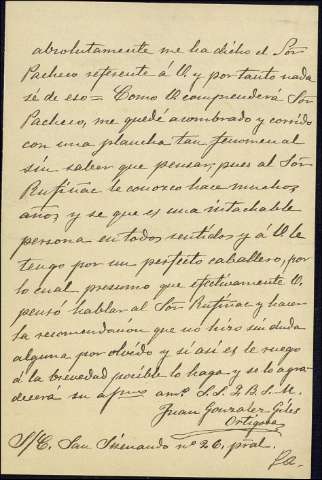 absolutamente me ha dicho el Sor
Pacheco referente á V. y por tanto nada
sé de eso = Como V. comprenderá Sor
Pacheco, me quedé asombrado y corrido
con una plancha tan fenomenal
sin saber que pensar, pues al Sor
Rufiñac le conozco hace muchos
años y se que es una intachable
persona en todos sentidos y á V. le
tengo por un perfecto caballero, por
lo cual presumo que efectivamente V.
pensó hablar al Sor Rufiñac y hacer
la recomendacion que no hizo sin duda
alguna por olvido y si así es le ruego
á la brevedad posible lo haga y se lo agra-
decerá su afmo am. S. S. Q. B. S. M.
Juan Gonzalez Giles
Ortigosa
S/C. San Sisenando nº 26. pral.